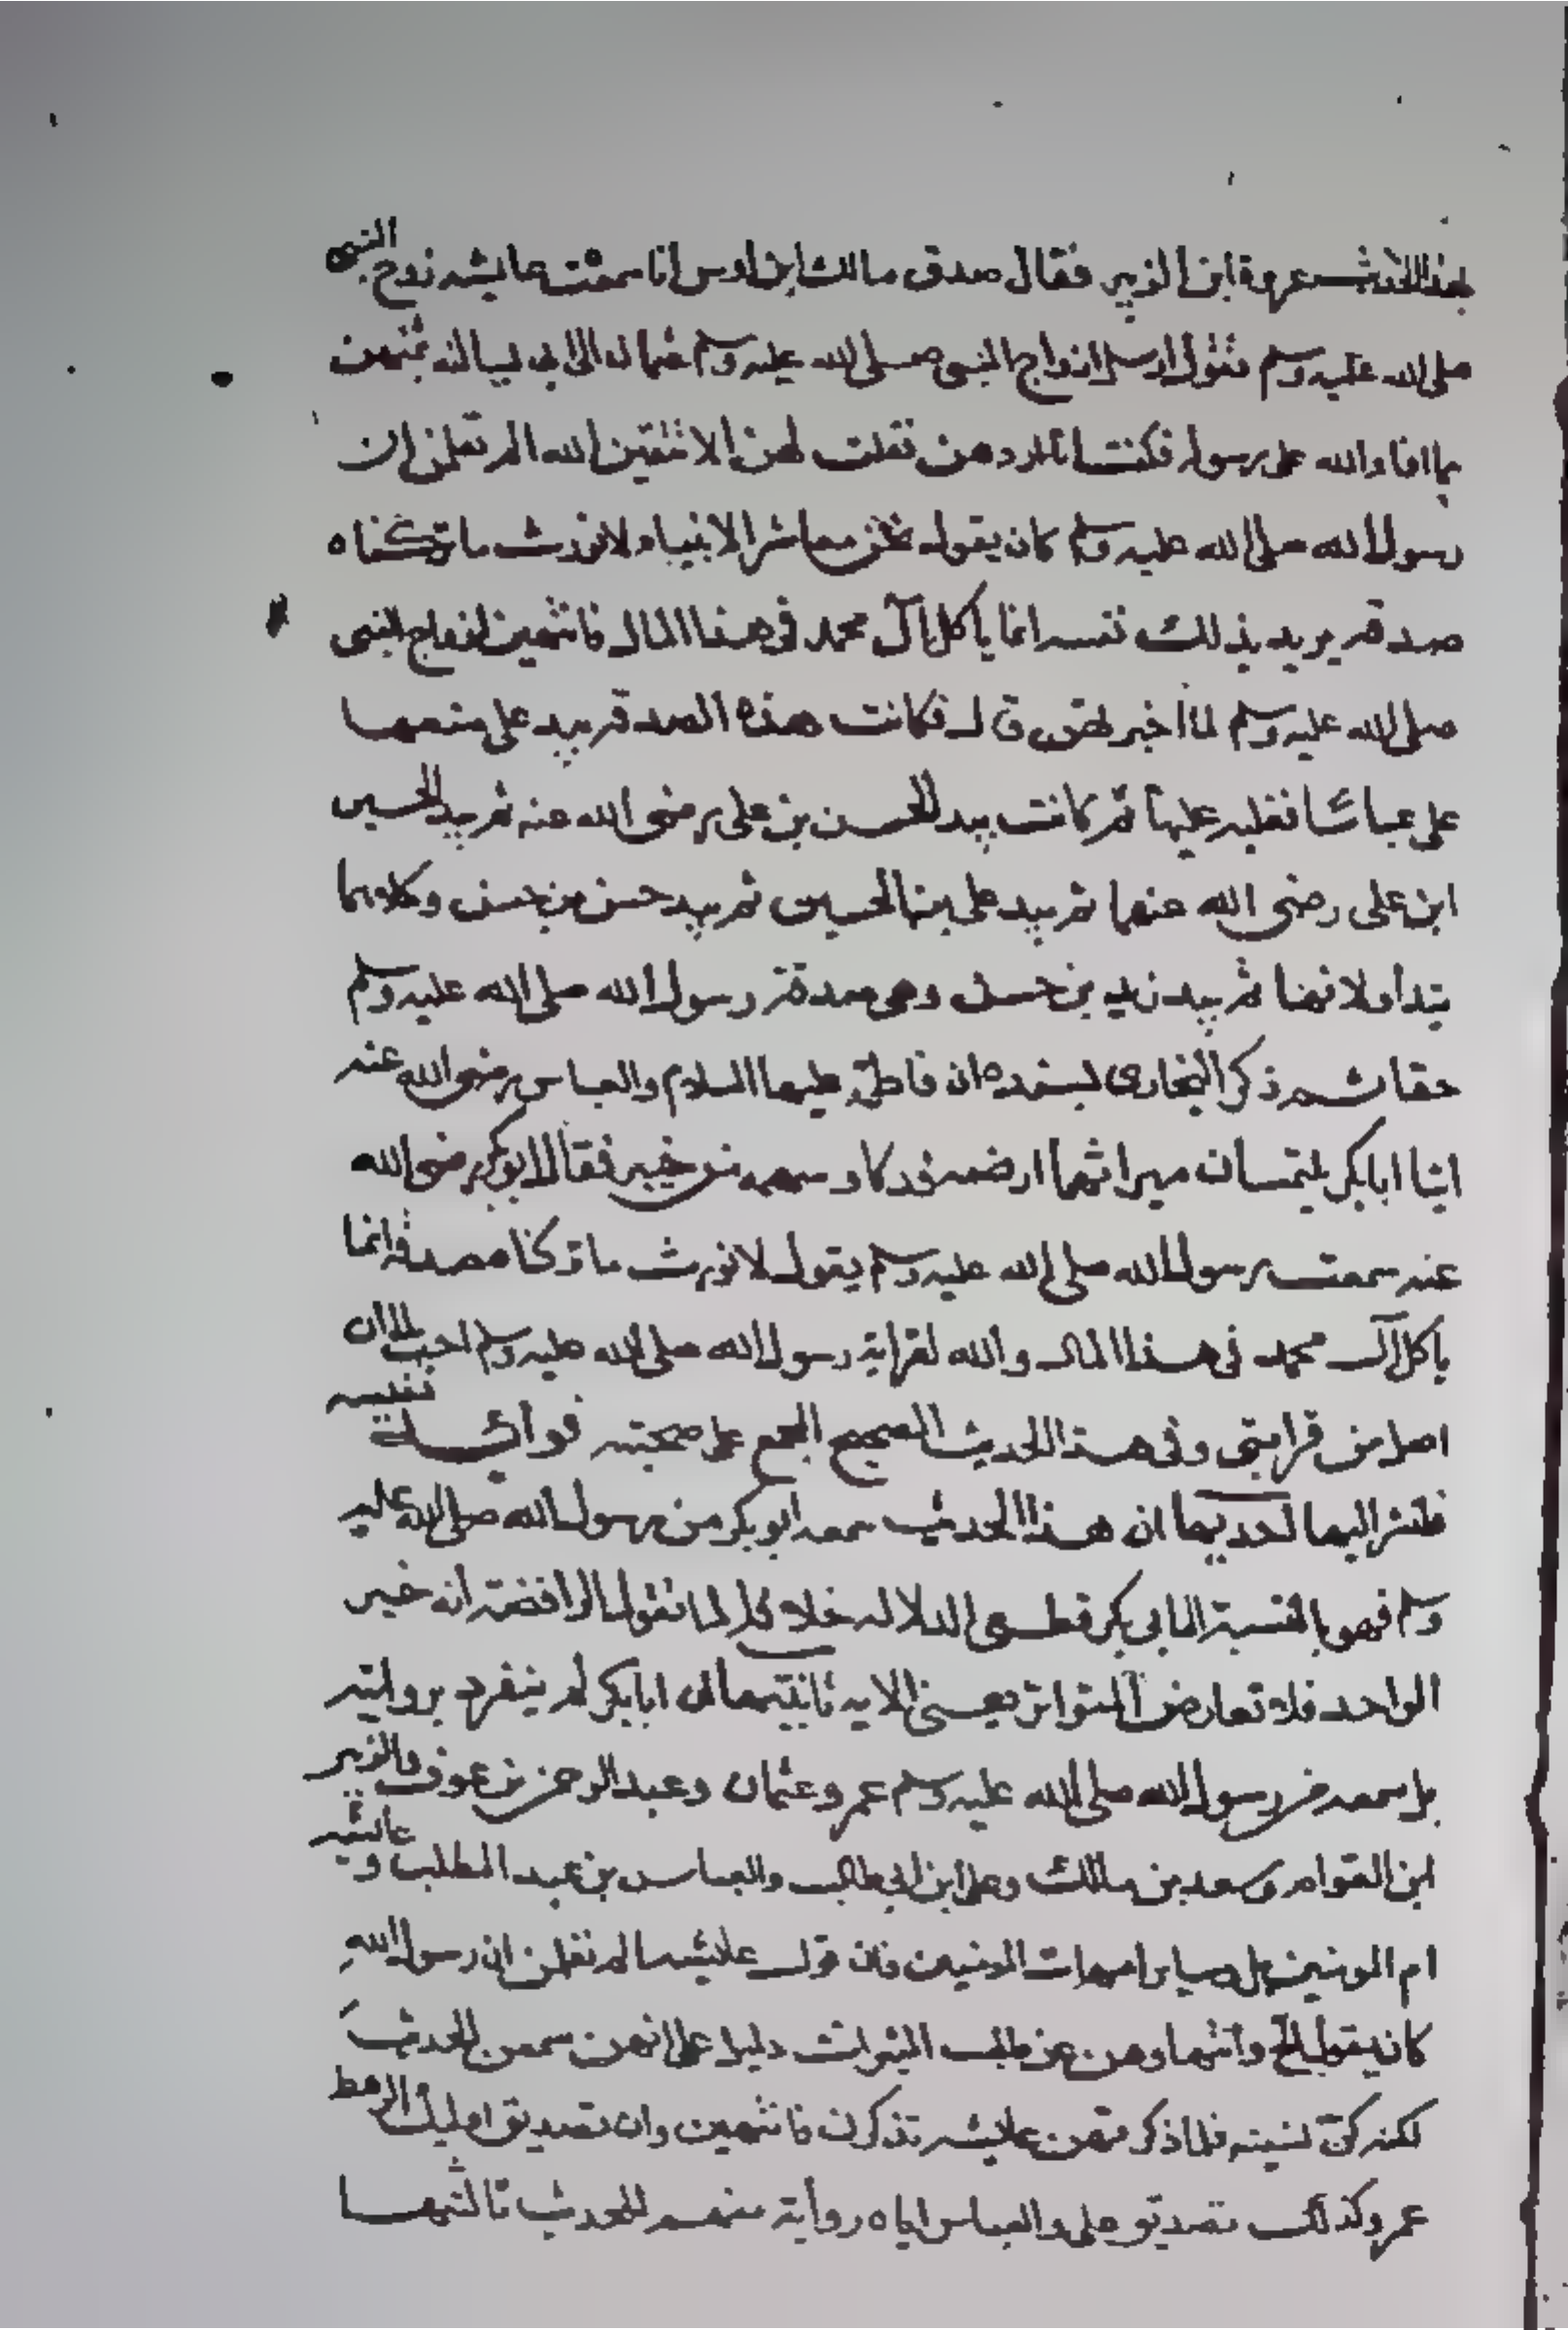 بهذا الحديث عروة ابن الزبير فقال صدق مالك ابن اوس انا سمعت عايشه زوج النبي
صلى الله عليه وسلم تقول ارسل ازواج النبى صلى الله عليه وسلم عثمان الى ابى يسالنه ثمنهن
مما افاء الله على رسوله فكنت انا اردهن فقلت لهن الا تتقين الله الم تعلمن ان
رسول الله صلى الله عليه وسلم كان يقول نحن معاشر الانبياء لا نورث ما تركناه
صدقه يريد بذلك نفسه انما ياكل آل محمد فى هذا المال فانتهين ازواج النبى
صلى الله عليه وسلم لما اخبرتهن قال فكانت هذه الصدقه بيد على منعها
على عباسًا فغلبه عليها ثم كانت بيد الحسن بن على رضى الله عنه ثم بيد الحسين
ابن على رضى الله عنهما ثم بيد على بن الحسين ثم بيد حسن بن حسن وكلاهما
يتداولانها ثم بيد زيد بن حسن وهى صدقة رسول الله صلى الله عليه وسلم
حقا ثم ذكر البخارى بسنده ان فاطمة عليها السلام والعباس رضى الله عنه
اتيا ابا بكر يلتمسان ميراثهما ارضه فدكا وسهمه من خيبر فقال ابو بكر رضى الله
عنه سمعت رسول الله صلى الله عليه وسلم يقول لا نورث ما تركنا صدقة انما
ياكل آل محمد فى هذا المال والله لقرابة رسول الله صلى الله عليه وسلم احب الى ان
اصل من قرابتى وفى هذا الحديث الصحيح المجمع على صحته فوائد نفيسه
فلنشر اليها احديها ان هذا الحديث سمعه ابو بكر من رسول الله صلى الله عليه
وسلم فهو بالنسبة الى ابى بكر قطعى الدلاله خلافا لما تقول الرافضة انه خبر
الواحد فلا تعارض المتواتر يعنى الايه ثانيتها ان ابا بكر لم ينفرد بروايته
بل سمعه من رسول الله صلى الله عليه وسلم عمر وعثمان وعبد الرحمن بن عوف والزبير
ابن العوام وسعد بن مالك وعلى ابن ابى طالب والعباس بن عبد المطلب وعائشه
ام المومنين بل وساير امهات المومنين فان قول عائشه الم تعلمن ان رسول الله
كان يقول الخ وانتهاوهن عن طلب الميراث دليل على انهن سمعن الحديث
لكنه كن نسينه فلما ذكرتهن عايشه تذكرن فانتهين وان تصديق اوليك الرهط
عمر وكذلك تصديق على والعباس اياه رواية منهم للحديث ثالثها